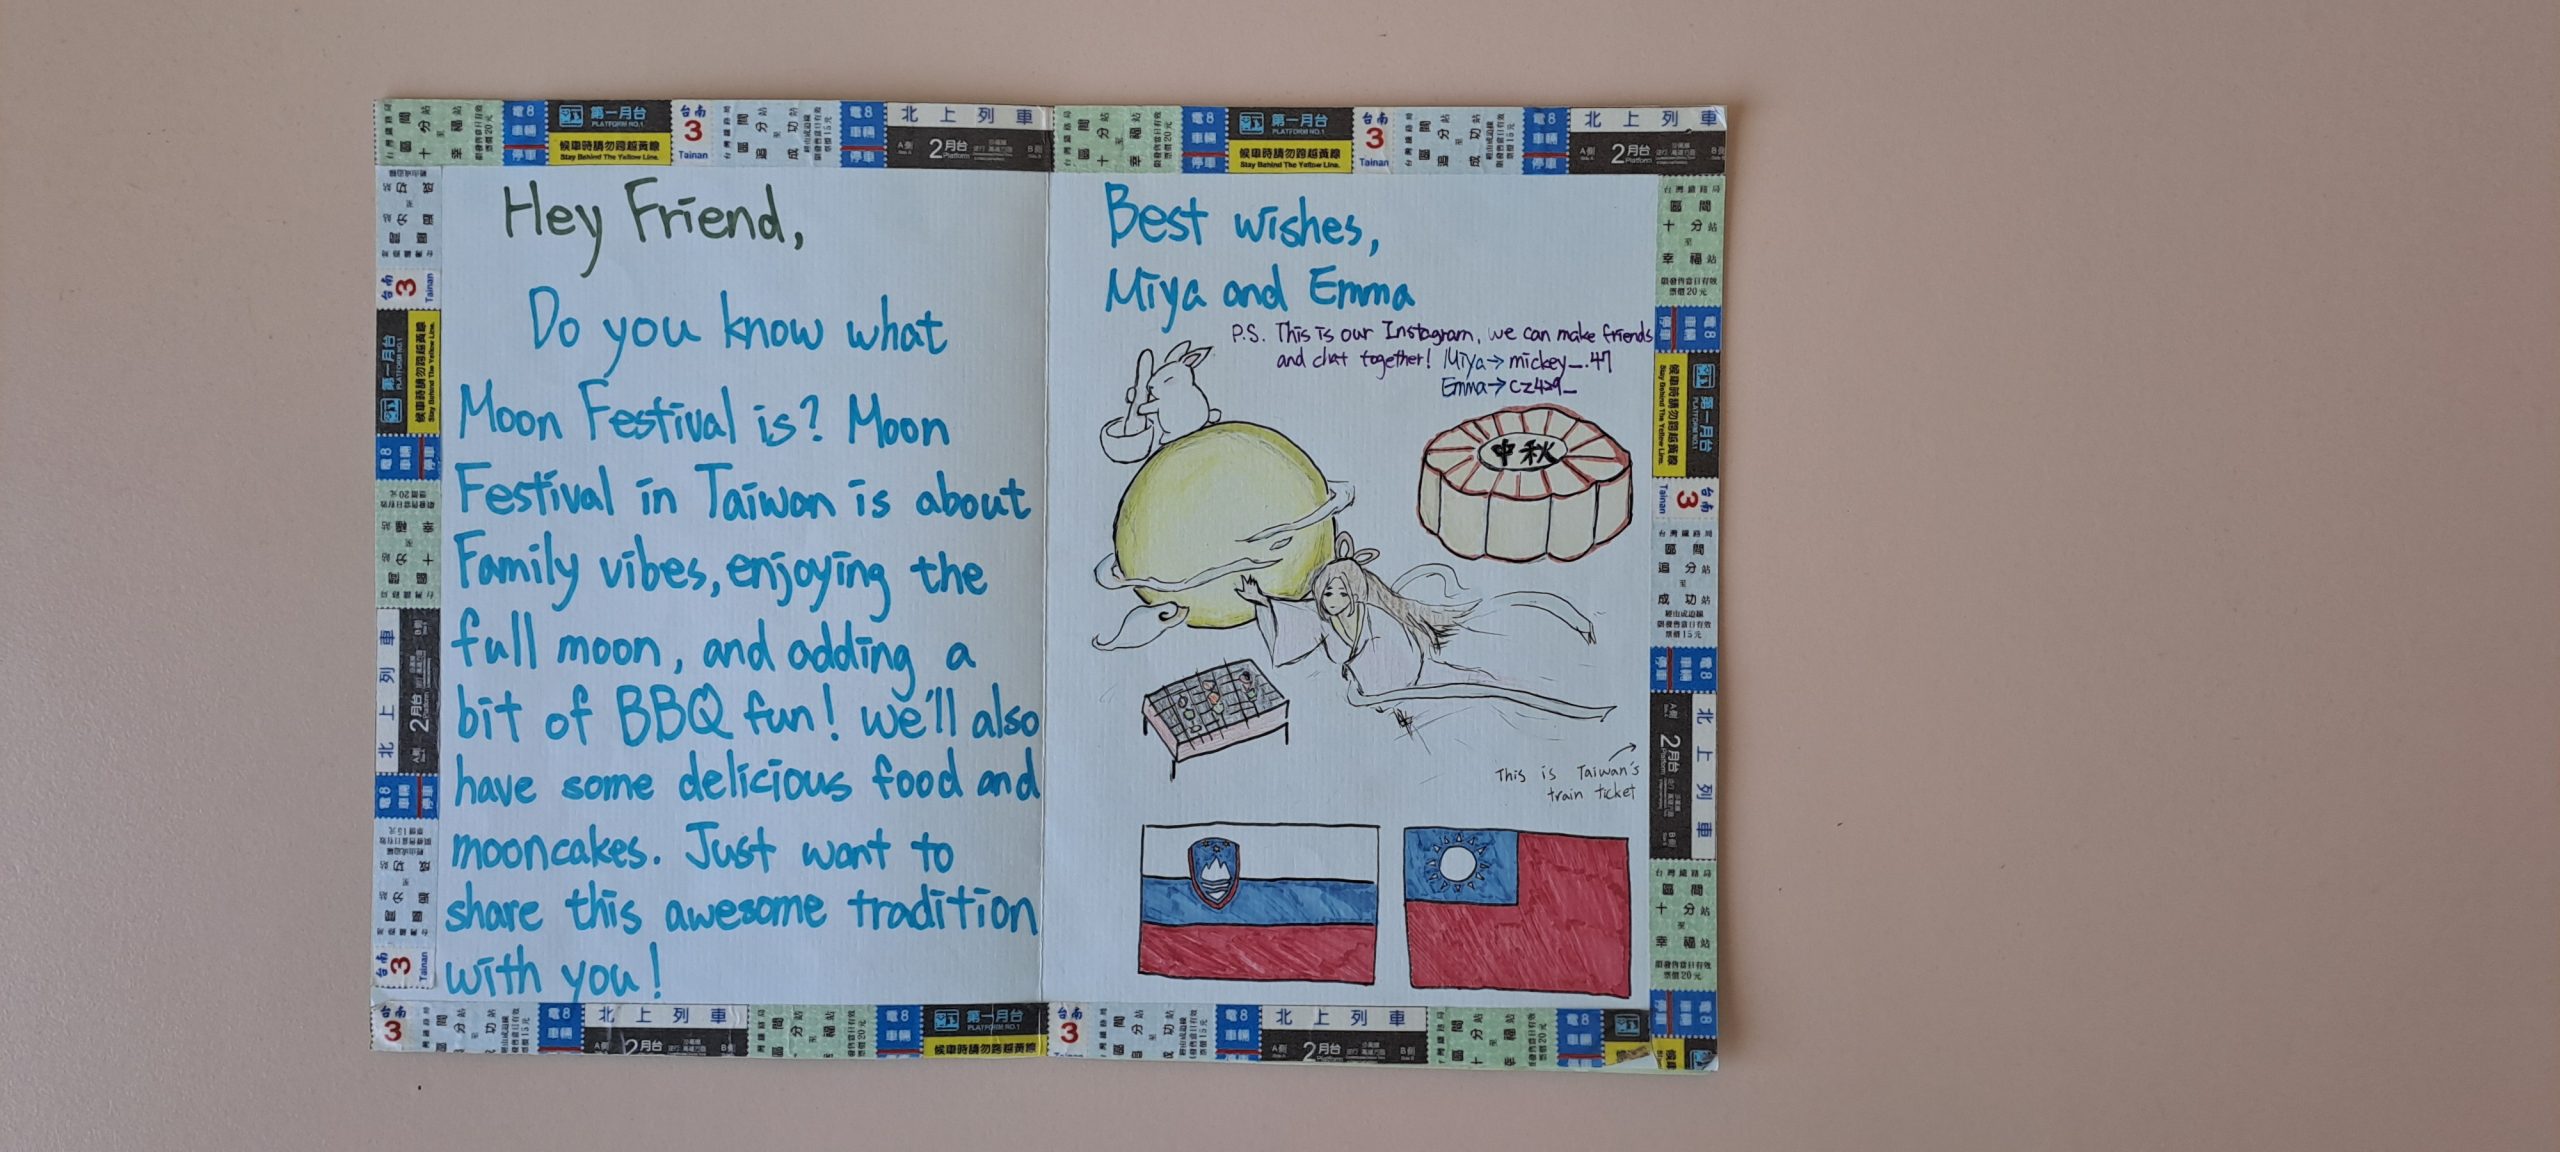 Hey Friend,
Do you know what
Moon Festival is? Moon
Festival in Taiwan is about
Family vibes, enjoying the
full moon, and adding a
bit of BBQ fun! We'll also
have some delicious food and
mooncakes. Just want to
share this awesome tradition
with you!
Best wishes,
Miya and Emma
P.S. This is our Instagram, we can make friends
and chat together! Miya→ mickey_.47
Emma→ cz429_
中秋
This is Taiwan's
train ticket
台灣鐵路局
區間
十分站
至
幸福站
票價20元
電8
車輛
停車
第一月台
PLATFORM NO.1
候車時請勿跨越黃線
Stay Behind The Yellow Line.
台南
3
Tainan
台灣鐵路局
區間
追分站
至
成功站
票價15元
北上列車
A側
2月台
Platform
B側